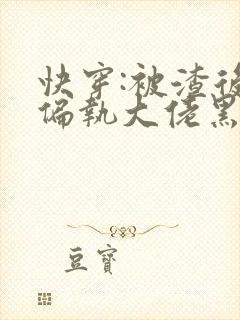 快穿:被渣後
偏執大佬黑
豆寶